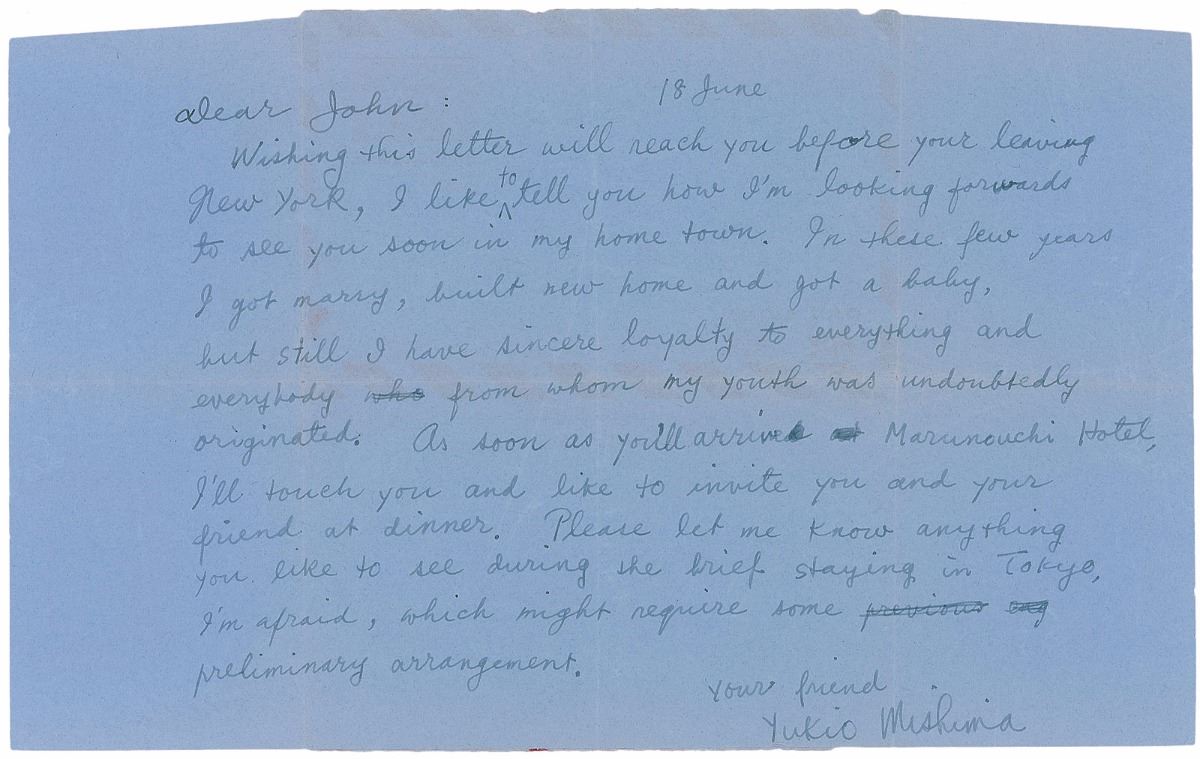 Dear John :
18 June
Wishing this letter will reach you before your leaving
New York, I like to tell you how I'm looking forwards
to see you soon in my home town. In these few years
I got marry, built new home and got a baby,
but still I have sincere loyalty to everything and
everybody who from whom my youth was undoubtedly
originated. As soon as you'll arrive at Marunouchi Hotel,
I'll touch you and like to invite you and your
friend at dinner. Please let me know anything
you like to see during the brief staying in Tokyo,
I'm afraid, which might require some previous eng
preliminary arrangement.
Your friend
Yukio Mishima